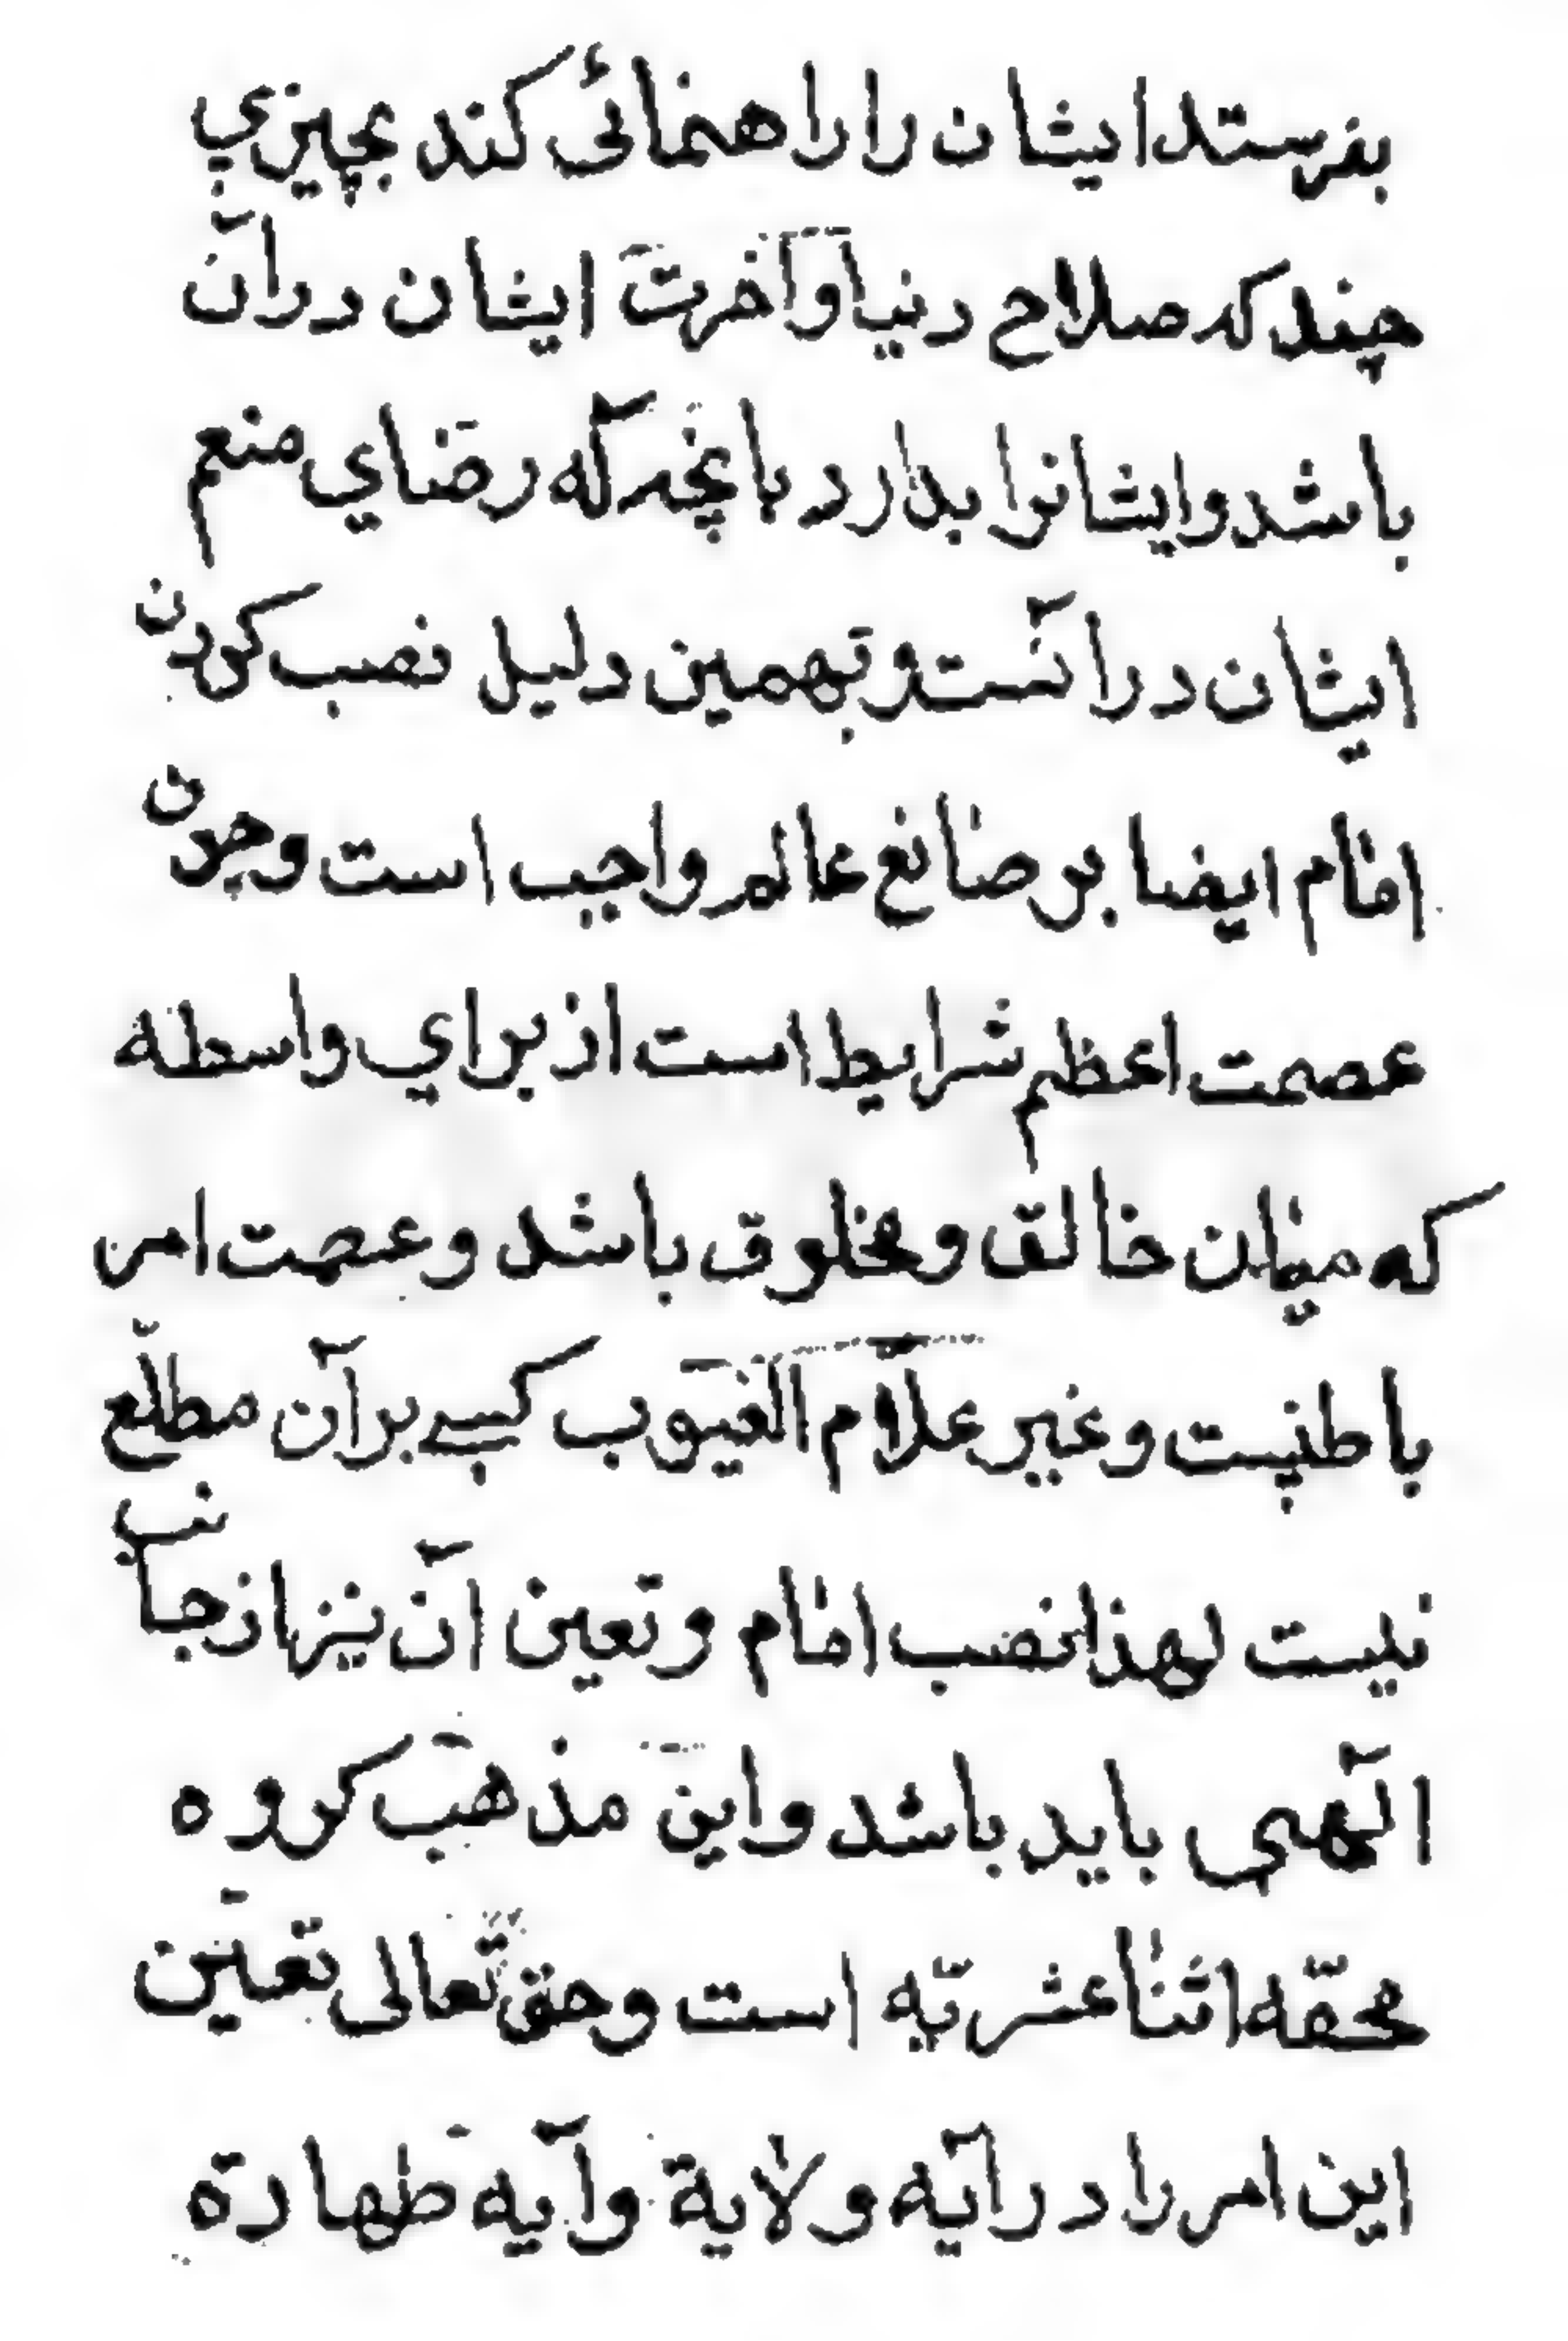 بفرستد ایشان را راهنمائی کند بچیزي
چند که صلاح دنیا و آخرت ایشان در آن
باشد و ایشانرا بدارد بآنچه که رضاي منعم
ایشان در آنست و بهمین دلیل نصب کردن
امام ایضا بر صانع عالم واجب است و چون
عصمت اعظم شرایط است از براي واسطه
که میان خالق و مخلوق باشد و عصمت امر
باطنیست و غیر علّام الغیوب کسی بر آن مطلّع
نیست لهذا نصب امام و تعین آن نیز از جانب
الٓهی باید باشد و این مذهب کروه
محقّه اثنا عشریّه است و حق تعالی تعین
این امر را در آیه ولایة و آیه طهارة